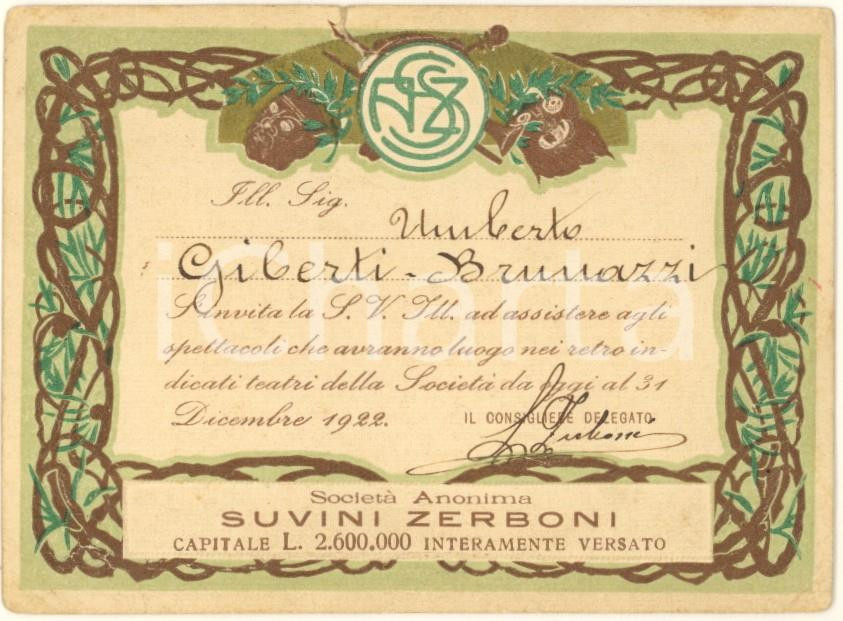 Ill. Sig. Umberto
Giberti - Brunazzi
S'invita la S. V. Ill. ad assistere agli
spettacoli che avranno luogo nei retro in-
dicati teatri della Società da oggi al 31
Dicembre 1922.
IL CONSIGLIERE DELEGATO
Zerboni
Società Anonima
SUVINI ZERBONI
CAPITALE L. 2.600.000 INTERAMENTE VERSATO
iCharta